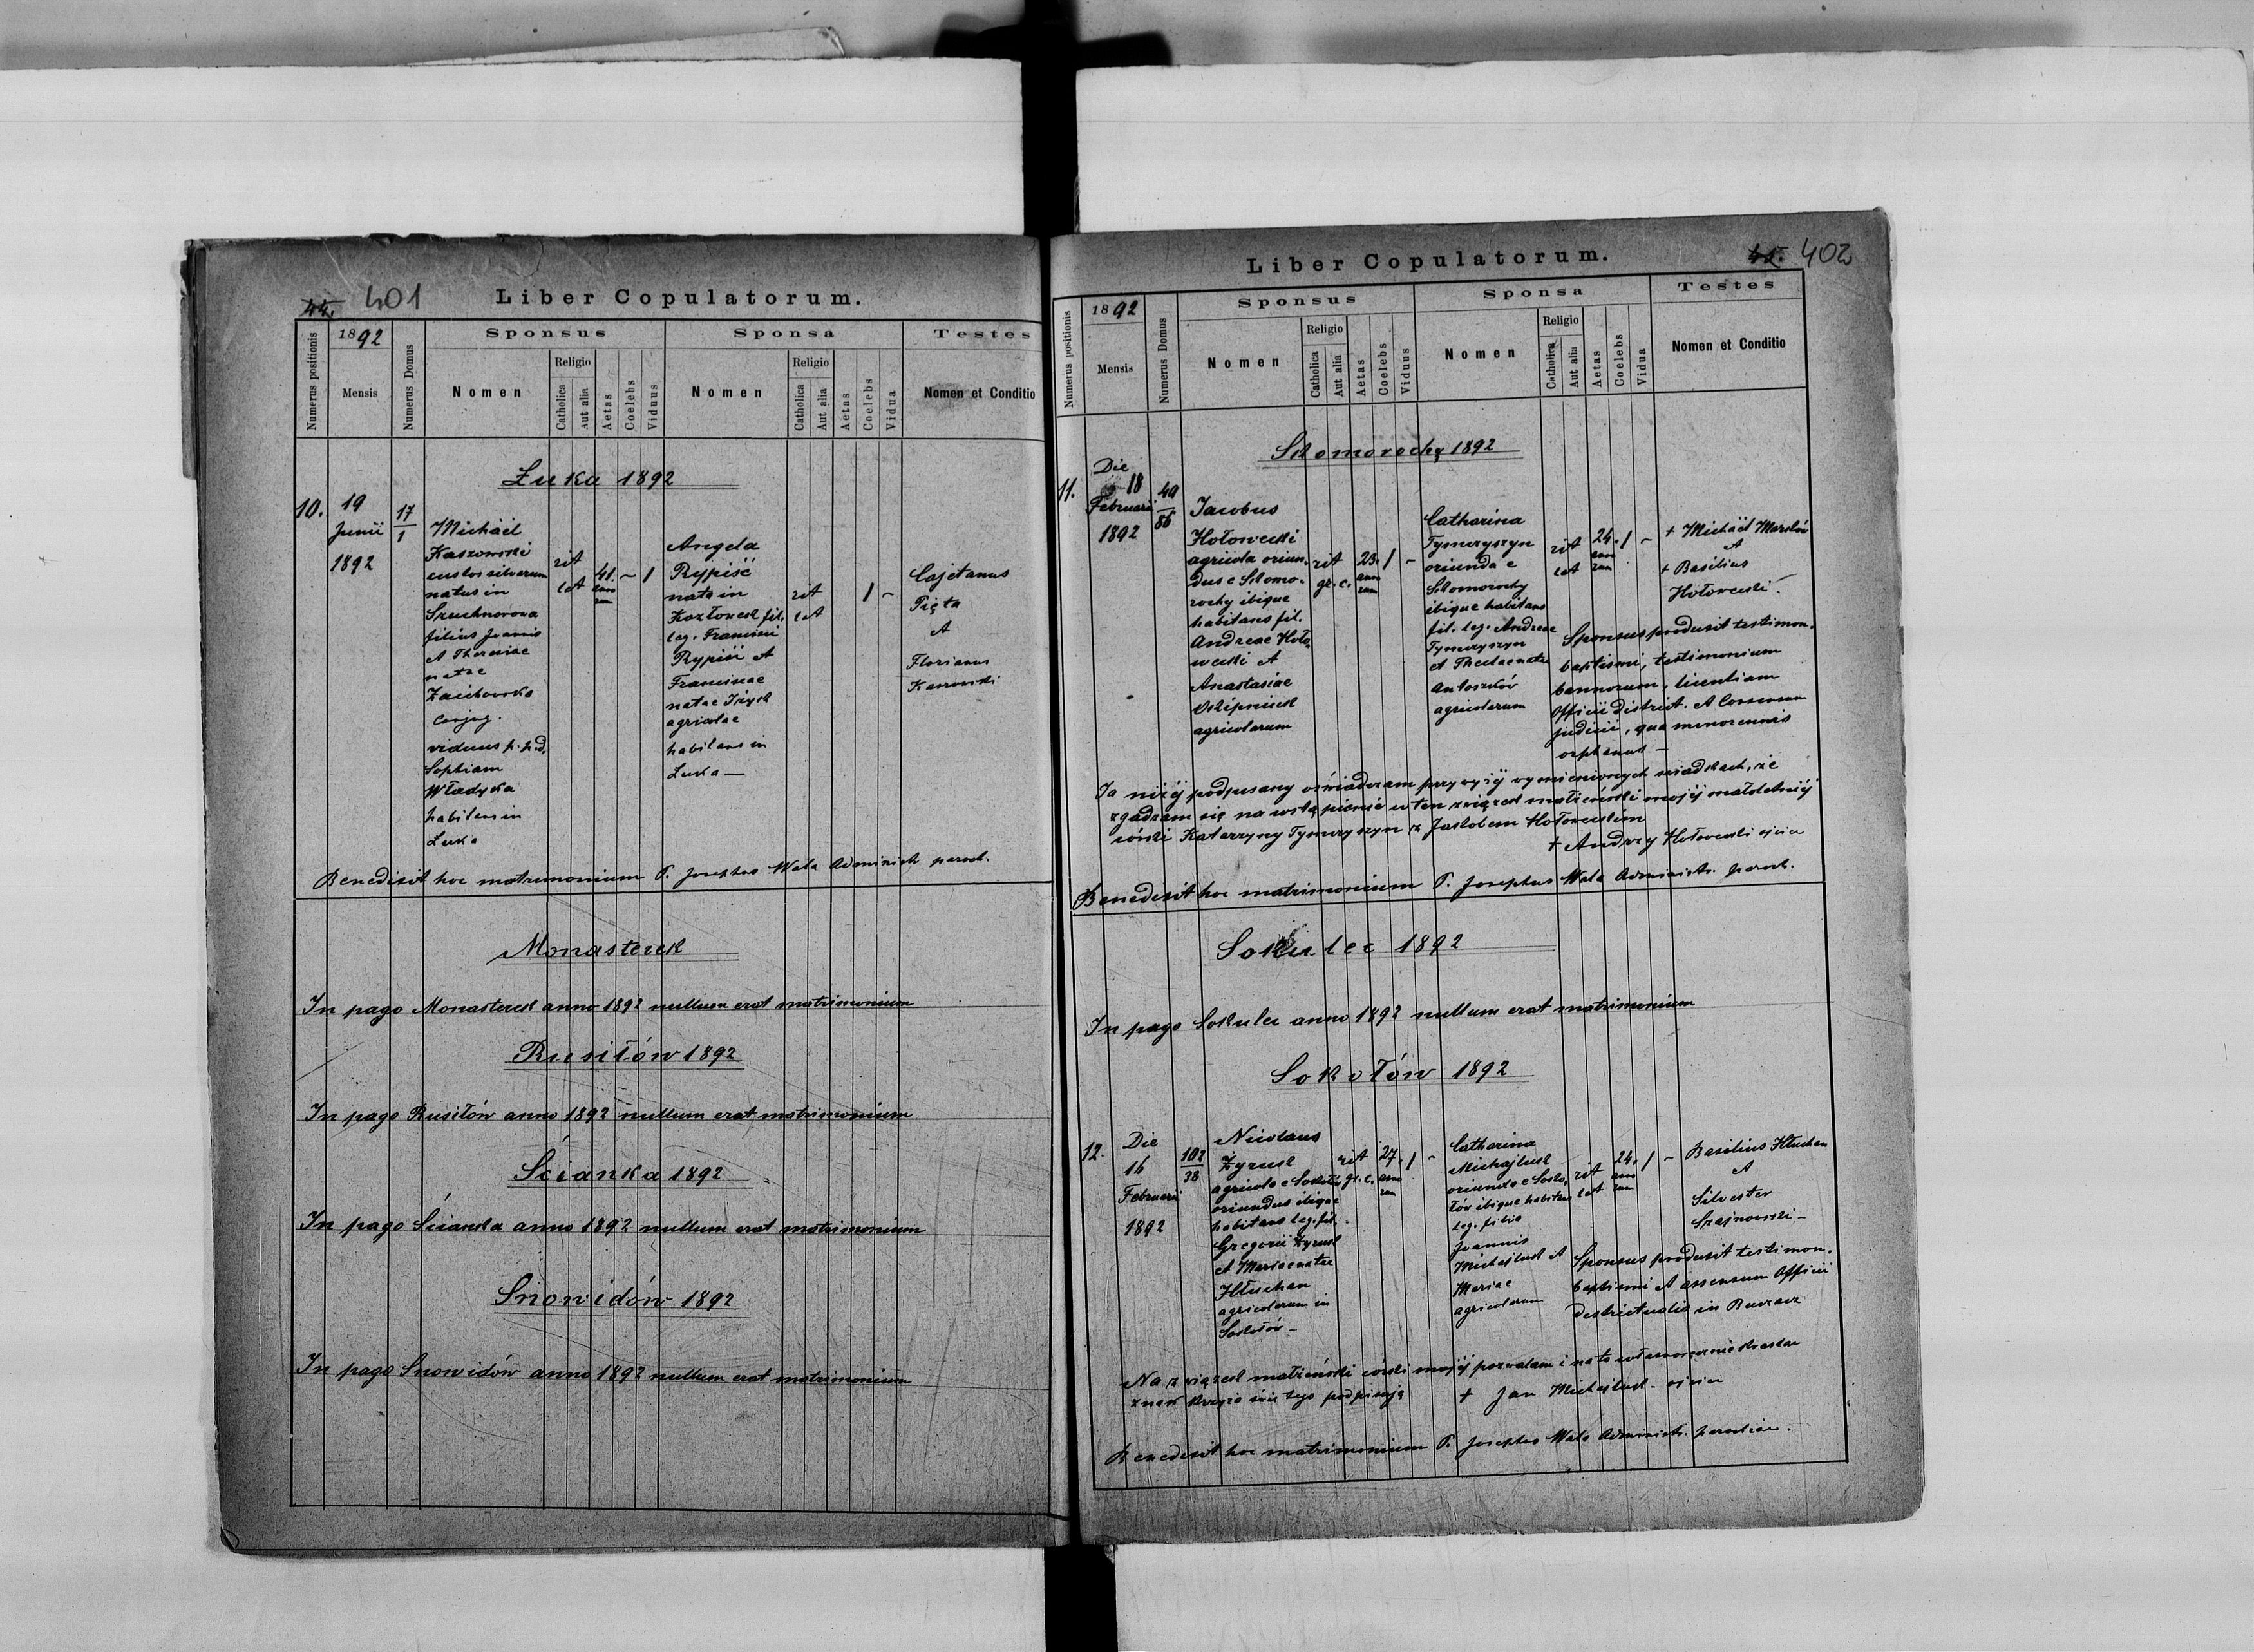 44. 401
Liber Copulatorum.
Numerus positionis
1892
Mensis
Numerus Domus
Sponsus
Nomen
Religio
Catholica
Aut alia
Aetas
Coelebs
Viduus
Sponsa
Nomen
Religio
Catholica
Aut alia
Aetas
Coelebs
Vidua
Testes
Nomen et Conditio
Łuka 1892
10.
19
Junii
1892
17
1
Michaël
Kaszowski
custos silvarum
natus in
filius Joannis
et Theresiae
natae
Zaichowska
conjug.
viduus p. p. d.
Sophiam
Władyka
habitans in
Łuka
rit
lat
41.
anno
rum
~
1
Angela
Rypiść
nata in
Kozłowek fil.
leg. Francisci
Rypiść et
Franciscae
natae
agricolae
habitans in
Łuka —
rit
lat
1
~
Cajetanus
Pięta
et
Florianus
Kaszowski
Benedixit hoc matrimonium P. Josephus Wala Administr. paroch.
Monasterek
In pago Monasterek anno 1892 nullum erat matrimonium
Rusiłów 1892
In pago Rusiłów anno 1892 nullum erat matrimonium
Ścianka 1892
In pago Ścianka anno 1892 nullum erat matrimonium
Snowidów 1892
In pago Snowidów anno 1892 nullum erat matrimonium
Liber Copulatorum.
45. 402
Numerus positionis
1892
Mensis
Numerus Domus
Sponsus
Nomen
Religio
Catholica
Aut alia
Aetas
Coelebs
Viduus
Sponsa
Nomen
Religio
Catholica
Aut alia
Aetas
Coelebs
Vidua
Testes
Nomen et Conditio
Skomorochy 1892
11.
Die
18
Februarii
1892
49
86
Jacobus
Hołowecki
agricola oriun-
dus e Skomo-
rochy ibique
habitans fil.
Andreae Hoło
wecki et
Anastasiae
agricolarum
rit
gr. c.
23.
anno
rum
1
~
Catharina
Tymczyszyn
oriunda e
Skomorochy
ibique habitans
fil. leg. Andreae
Tymczyszyn
et Theclae natae
Antoszków
agricolarum
rit
lat
24.
anno
rum
1
~
+ Michaël
et
+ Basilius
Hołowecki.
Sponsus produxit testimon.
baptismi, testimonium
bannorum, licentiam
Officii district. et Consensum
judicii, qua minorennis
orphanus —
Ja niżéj podpisany oświadczam przy wyżéj wymienionych świadkach, że
zgadzam się na wstąpienie w ten związek małżeński mojéj małoletniéj
córki Katarzyny Tymczyszyn z Jakobem Hołoweckim
+ Andrzy Hołowecki ojciec
Benedixit hoc matrimonium P. Josephus Wala Administr. paroch.
Sokulec 1892
In pago Sokulec anno 1892 nullum erat matrimonium
Sokołów 1892
12.
Die
16
Februarii
1892
102
38
Nicolaus
Żyruk
agricola e Sokołów
oriundus ibique
habitans leg. fil.
Gregorii Żyruk
et Mariae natae
Hłuchan
agricolarum in
Sokołów —
rit
gr. c.
27.
anno
rum
1
~
Catharina
Michajluk
oriunda e Soko-
łów ibique habitans
leg. filia
Joannis
Michajluk et
Mariae
agricolarum
rit
lat
24.
anno
rum
1
~
Basilius Hłuchan
et
Silvester
Szajnowski —
Sponsus produxit testimon.
baptismi et assensum Officii
districtualis in Buczacz
Na związek małżeński córki mojéj pozwalam i na to własnoręcznie kreśląc
znak krzyża świętego podpisuję
+ Jan Michajluk - ojciec
Benedixit hoc matrimonium P. Josephus Wala Administr. parochiae.